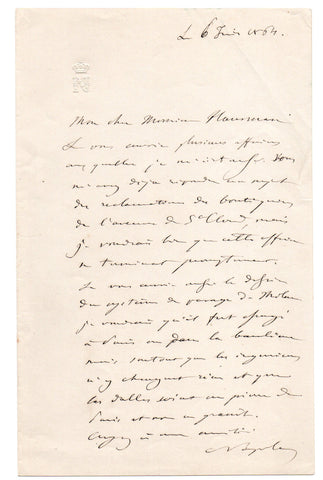 Le 6 Juin 1864.
Mon cher Monsieur Haussmann
Je vous envoie plusieurs affaires
auxquelles je m'intéresse. Vous
m'avez déjà répondu au sujet
des réclamations des boutiques
de l'avenue de St Cloud, mais
je voudrais bien que cette affaire
se terminat promptement.
Je vous envoie aussi le dessin
du système de pavage de Milan
je voudrais qu'il fut essayé
à Paris ou dans la banlieue
mais surtout que les ingénieurs
n'y changent rien et que
les dalles soient en pierre de
Paris et non en granit.
Croyez à mon amitié
Napoléon